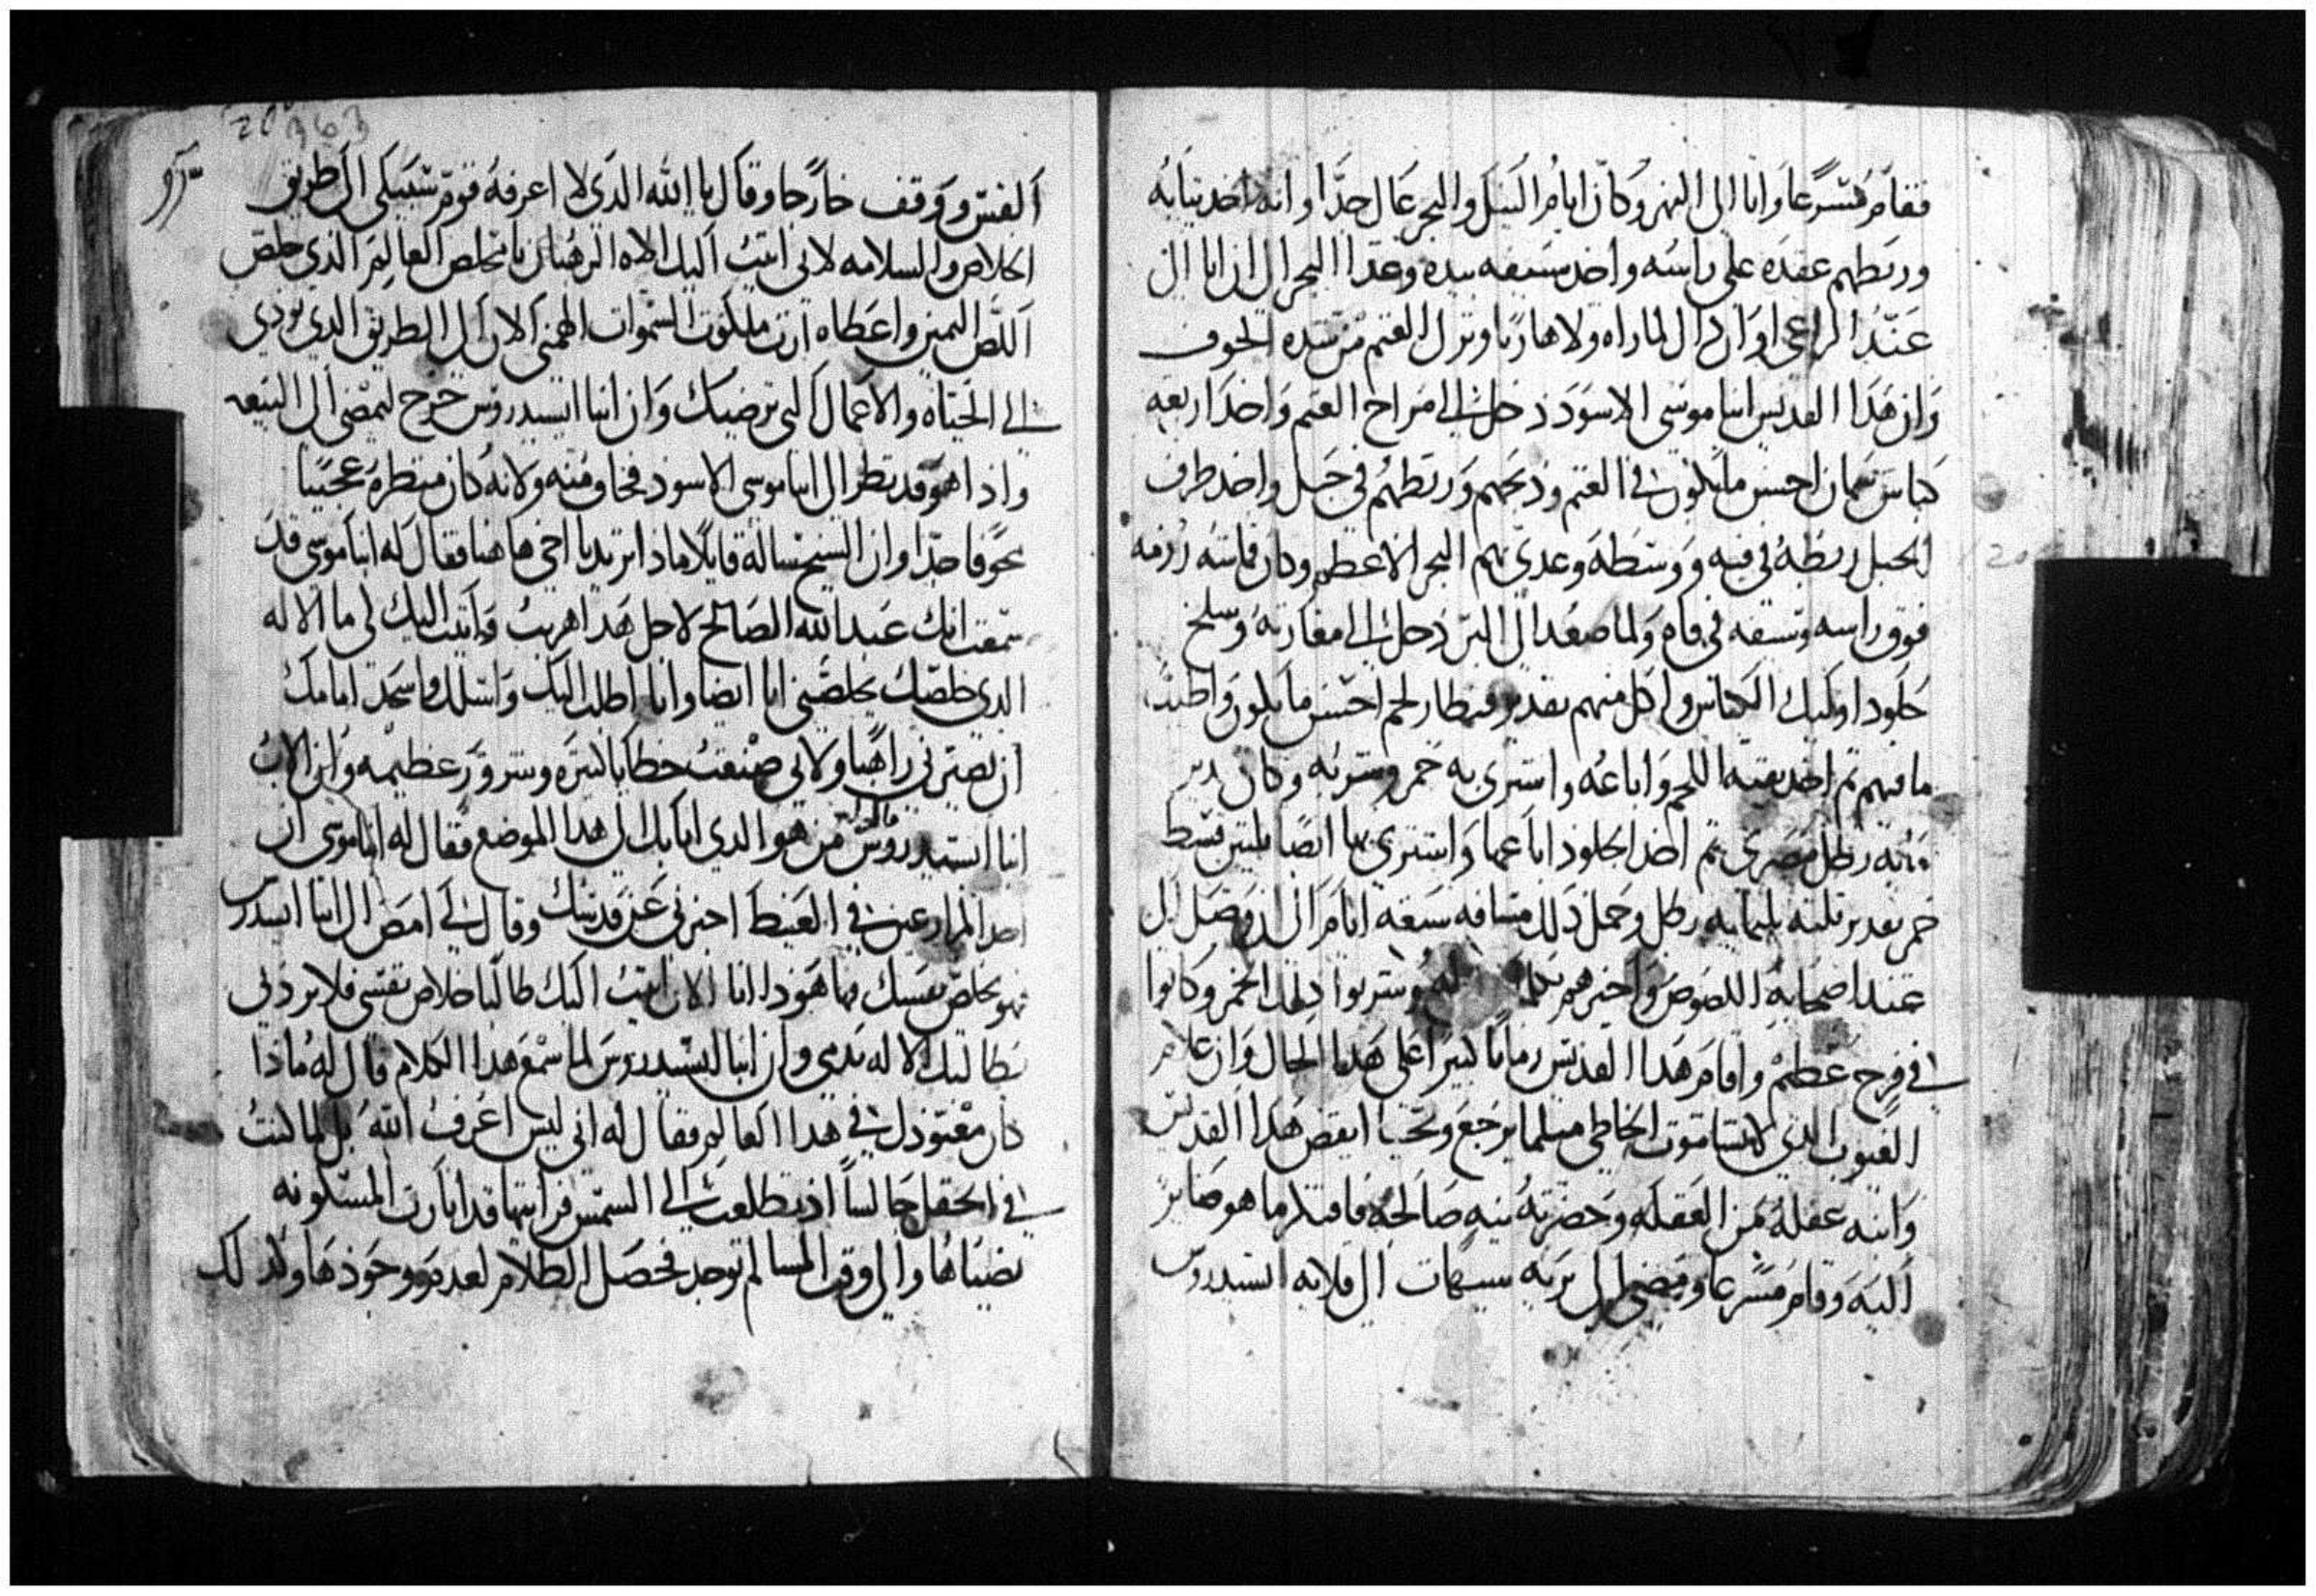 فقام مسرعا واتا الى النهر وكان ايام النيل والبحر عال جدا وانه اخد تيابه
وربطهم عقده على راسه واخد سيفه بيده وعدا البحر الى ان اتا الى
عند الراعي اوان ذال لما راه ولا هاربا وترك الغنم من شده الخوف
وان هدا القديس انبا موسى الاسود دخل الى مراح الغنم واخد اربعه
كباش سمان احسن ما يكون في الغنم ودبحهم وربطهم في حبل واخد طرف
الحبل ربطه في فيه ووسطه وعدى بهم البحر الاعظم وكان قماشه رزمه
فوق راسه وسيفه في فاه ولما صعد الى البر دخل الى مغارته وسلخ
جلود اوليك الكباش واكل منهم بقدر قنطار لحم احسن ما يكون واطيب
ما فيهم تم اخد بقيه اللحم واباعه واشترى به خمر وشربه وكان
مايه رطل مصرى تم اخد الجلود اباعها واشترى بها ايضا قسط
خمر بقدر تلتمايه رطل وحمل دلك مسافه سبعه ايام الى ان وصل الى
عند اصحابه اللصوص واخبرهم وشربوا دلك الخمر وكانوا
في فرح عظيم واقام هدا القديس زمانا كبيرا على هدا الحال وان علام
الغيوب الدي لا يشا موت الخاطي متلما يرجع ويحيا ايقض هدا القديس
وانبه عقله من الغفله وحضرته نيه صالحه فافتكر ما هو صاير
اليه وقام مسرعا ومضى الى بريه شيهات الى قلايه ايسيدروس
363
القس ووقف خارجا وقال يا الله الدي لا اعرفه قوم سبيلي الى طريق
الخلاص والسلامه لاني اتيت اليك الاه الرهبان يا مخلص العالم الذي خلص
اللص اليمين واعطاه ارت ملكوت السموات الهمني الان الى الطريق الدي تودي
الى الحياه والاعمال التي ترضيك وان انبا ايسيدروس خرج ليمضي الى البيعه
واذا هو قد نظر الى انبا موسى الاسود فخاف منه ولانه كان منظره عجيبا
مخوفا جدا وان الشيخ ساله قايلا ماذا تريد يا اخي هاهنا فقال له انبا موسى قد
سمعت انك عبد الله الصالح لاجل هدا هربت واتيت اليك لي ما الاله
الدي خلصك يخلصني انا ايضا وانا اطلب اليك واسلك واسجد امامك
ان تصيرني راهبا ولاني صنعت خطايا كتيره وشرور عظيمه وان الاب
انبا ايسيدروس قال له من هو الدي اتا بك الى هدا الموضع فقال له انبا موسى ان
احد المزارعين في الغيط اخبرني عن قدسك وقال لي امض الى انبا ايسيدرس
فهو يخلص نفسك فها هودا انا الان اتيت اليك طالبا خلاص نفسي فلا تردني
يطالبك الاله بدمي وان انبا ايسيدروس لما سمع هدا الكلام قال له ماذا
كان معبودك في هدا العالم فقال له اني ليس اعرف الله بل لما كنت
في الحقل جالسا اذ تطلعت الى الشمس فرايتها قد انارت المسكونه
بضياها والى وقت المسا لم توجد فحصل الظلام لعدم وجودها ولدلك